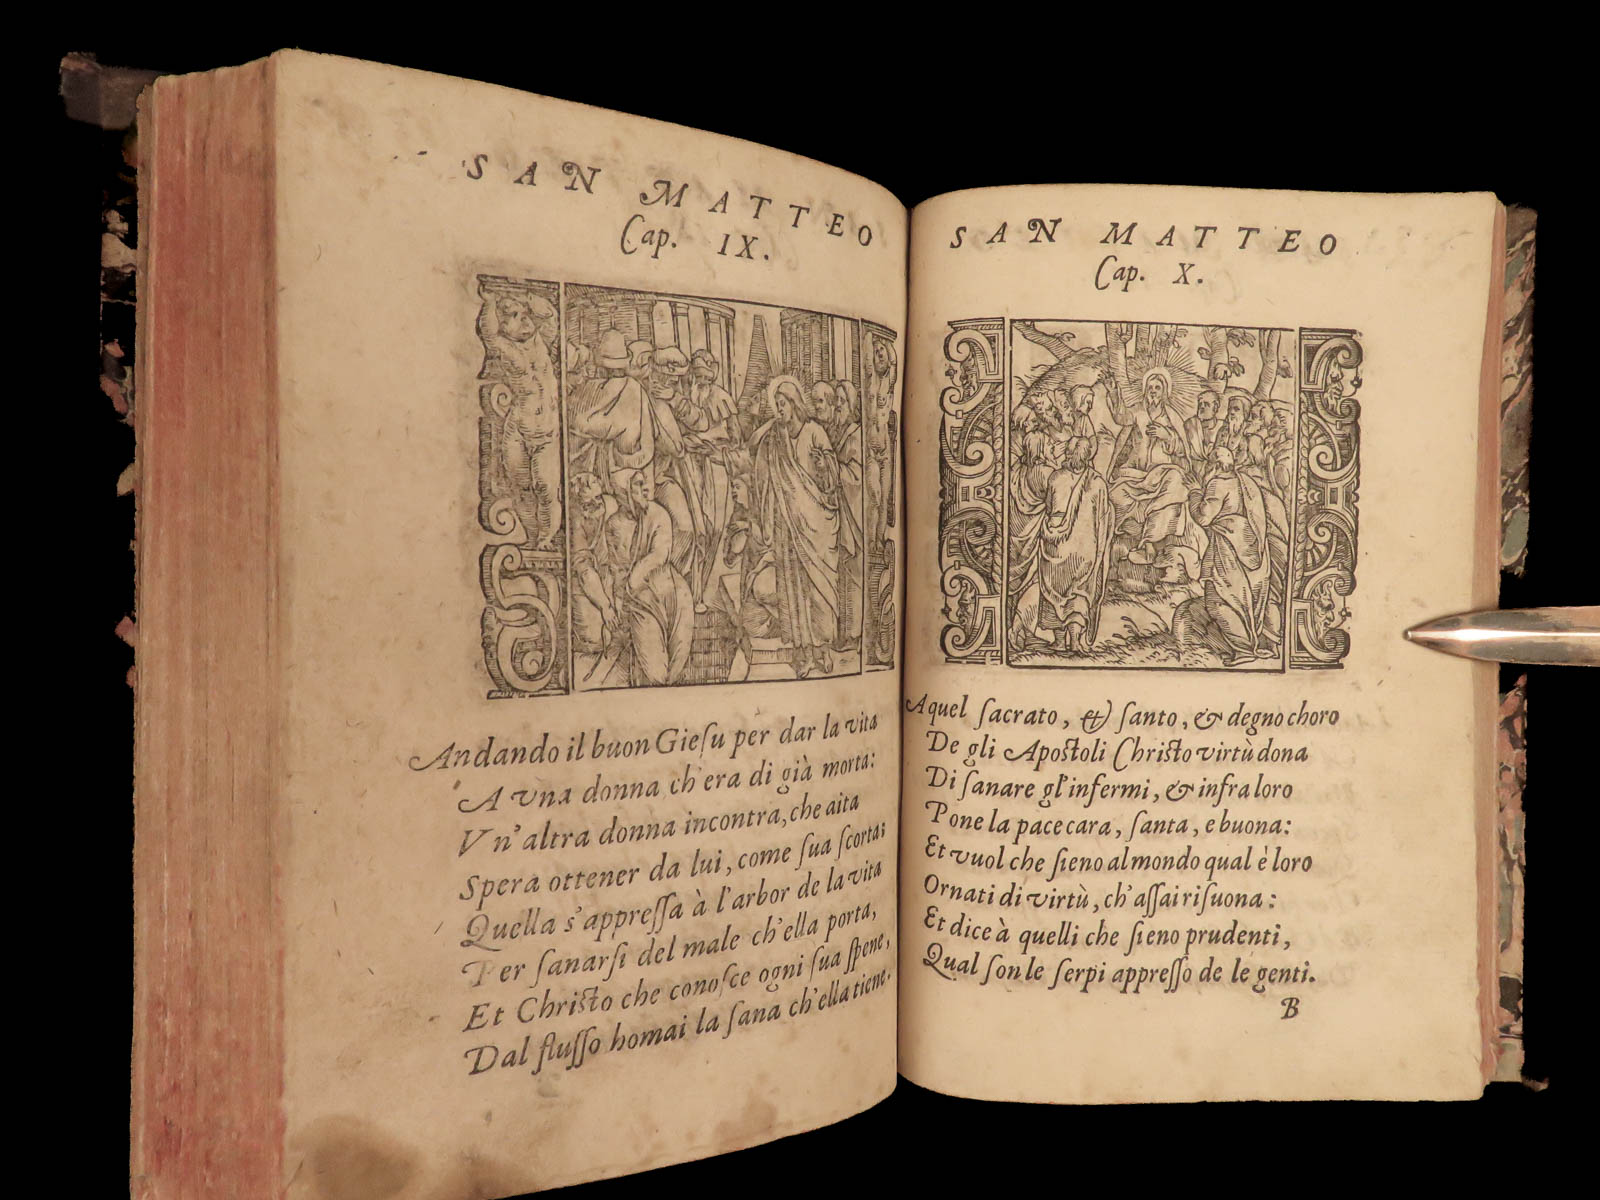 SAN MATTEO
Cap. IX.
Andando il buon Gieſu per dar la vita
A vna donna ch'era di già morta:
Vn'altra donna incontra, che aita
Spera ottener da lui, come ſua ſcorta:
Quella s'appreſſa à l'arbor de la vita
Per ſanarſi del male ch'ella porta,
Et Chriſto che conoſce ogni ſua ſpene,
Dal fluſſo homai la ſana ch'ella tiene.
SAN MATTEO
Cap. X.
A quel ſacrato, & ſanto, & degno choro
De gli Apoſtoli Chriſto virtù dona
Di ſanare gl'infermi, & infra loro
Pone la pace cara, ſanta, e buona:
Et vuol che ſieno al mondo qual è loro
Ornati di virtù, ch'aſſai riſuona:
Et dice à quelli che ſieno prudenti,
Qual ſon le ſerpi appreſſo de le genti.
B